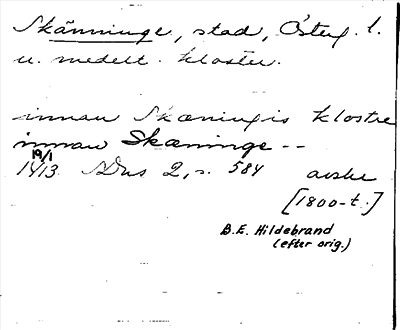 Skänninge, stad, Österg. l.
u. medelt. kloster.
innan Skæningis klostre
innan Skæninge --
19/1
1413. SDns 2, s. 584 avskr
[1800-t.]
B.E. Hildebrand
(efter orig.)